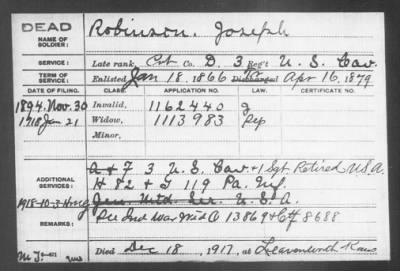 DEAD
NAME OF SOLDIER:
Robinson, Joseph
SERVICE:
Late rank, Cpt Co. D, 3 Reg't U.S. Cav.
TERM OF SERVICE:
Enlisted Jan 18, 1866 Discharged Apr 16, 1879
DATE OF FILING. CLASS. APPLICATION NO. LAW. CERTIFICATE NO.
1894. Nov. 30 Invalid, 1162440 g
1918 Jan 21 Widow, 1113983
Minor,
ADDITIONAL SERVICES:
A + F 3 U.S. Cav. + 1 Sgt. Retired U.S.A.
H 82 + I 119 Pa. Inf.
Gen Mtd. Ser. U.S.A.
REMARKS:
Ind War Wid O 13869 + Ctf 8688
Died Dec 18, 1917, at Leavenworth Kans